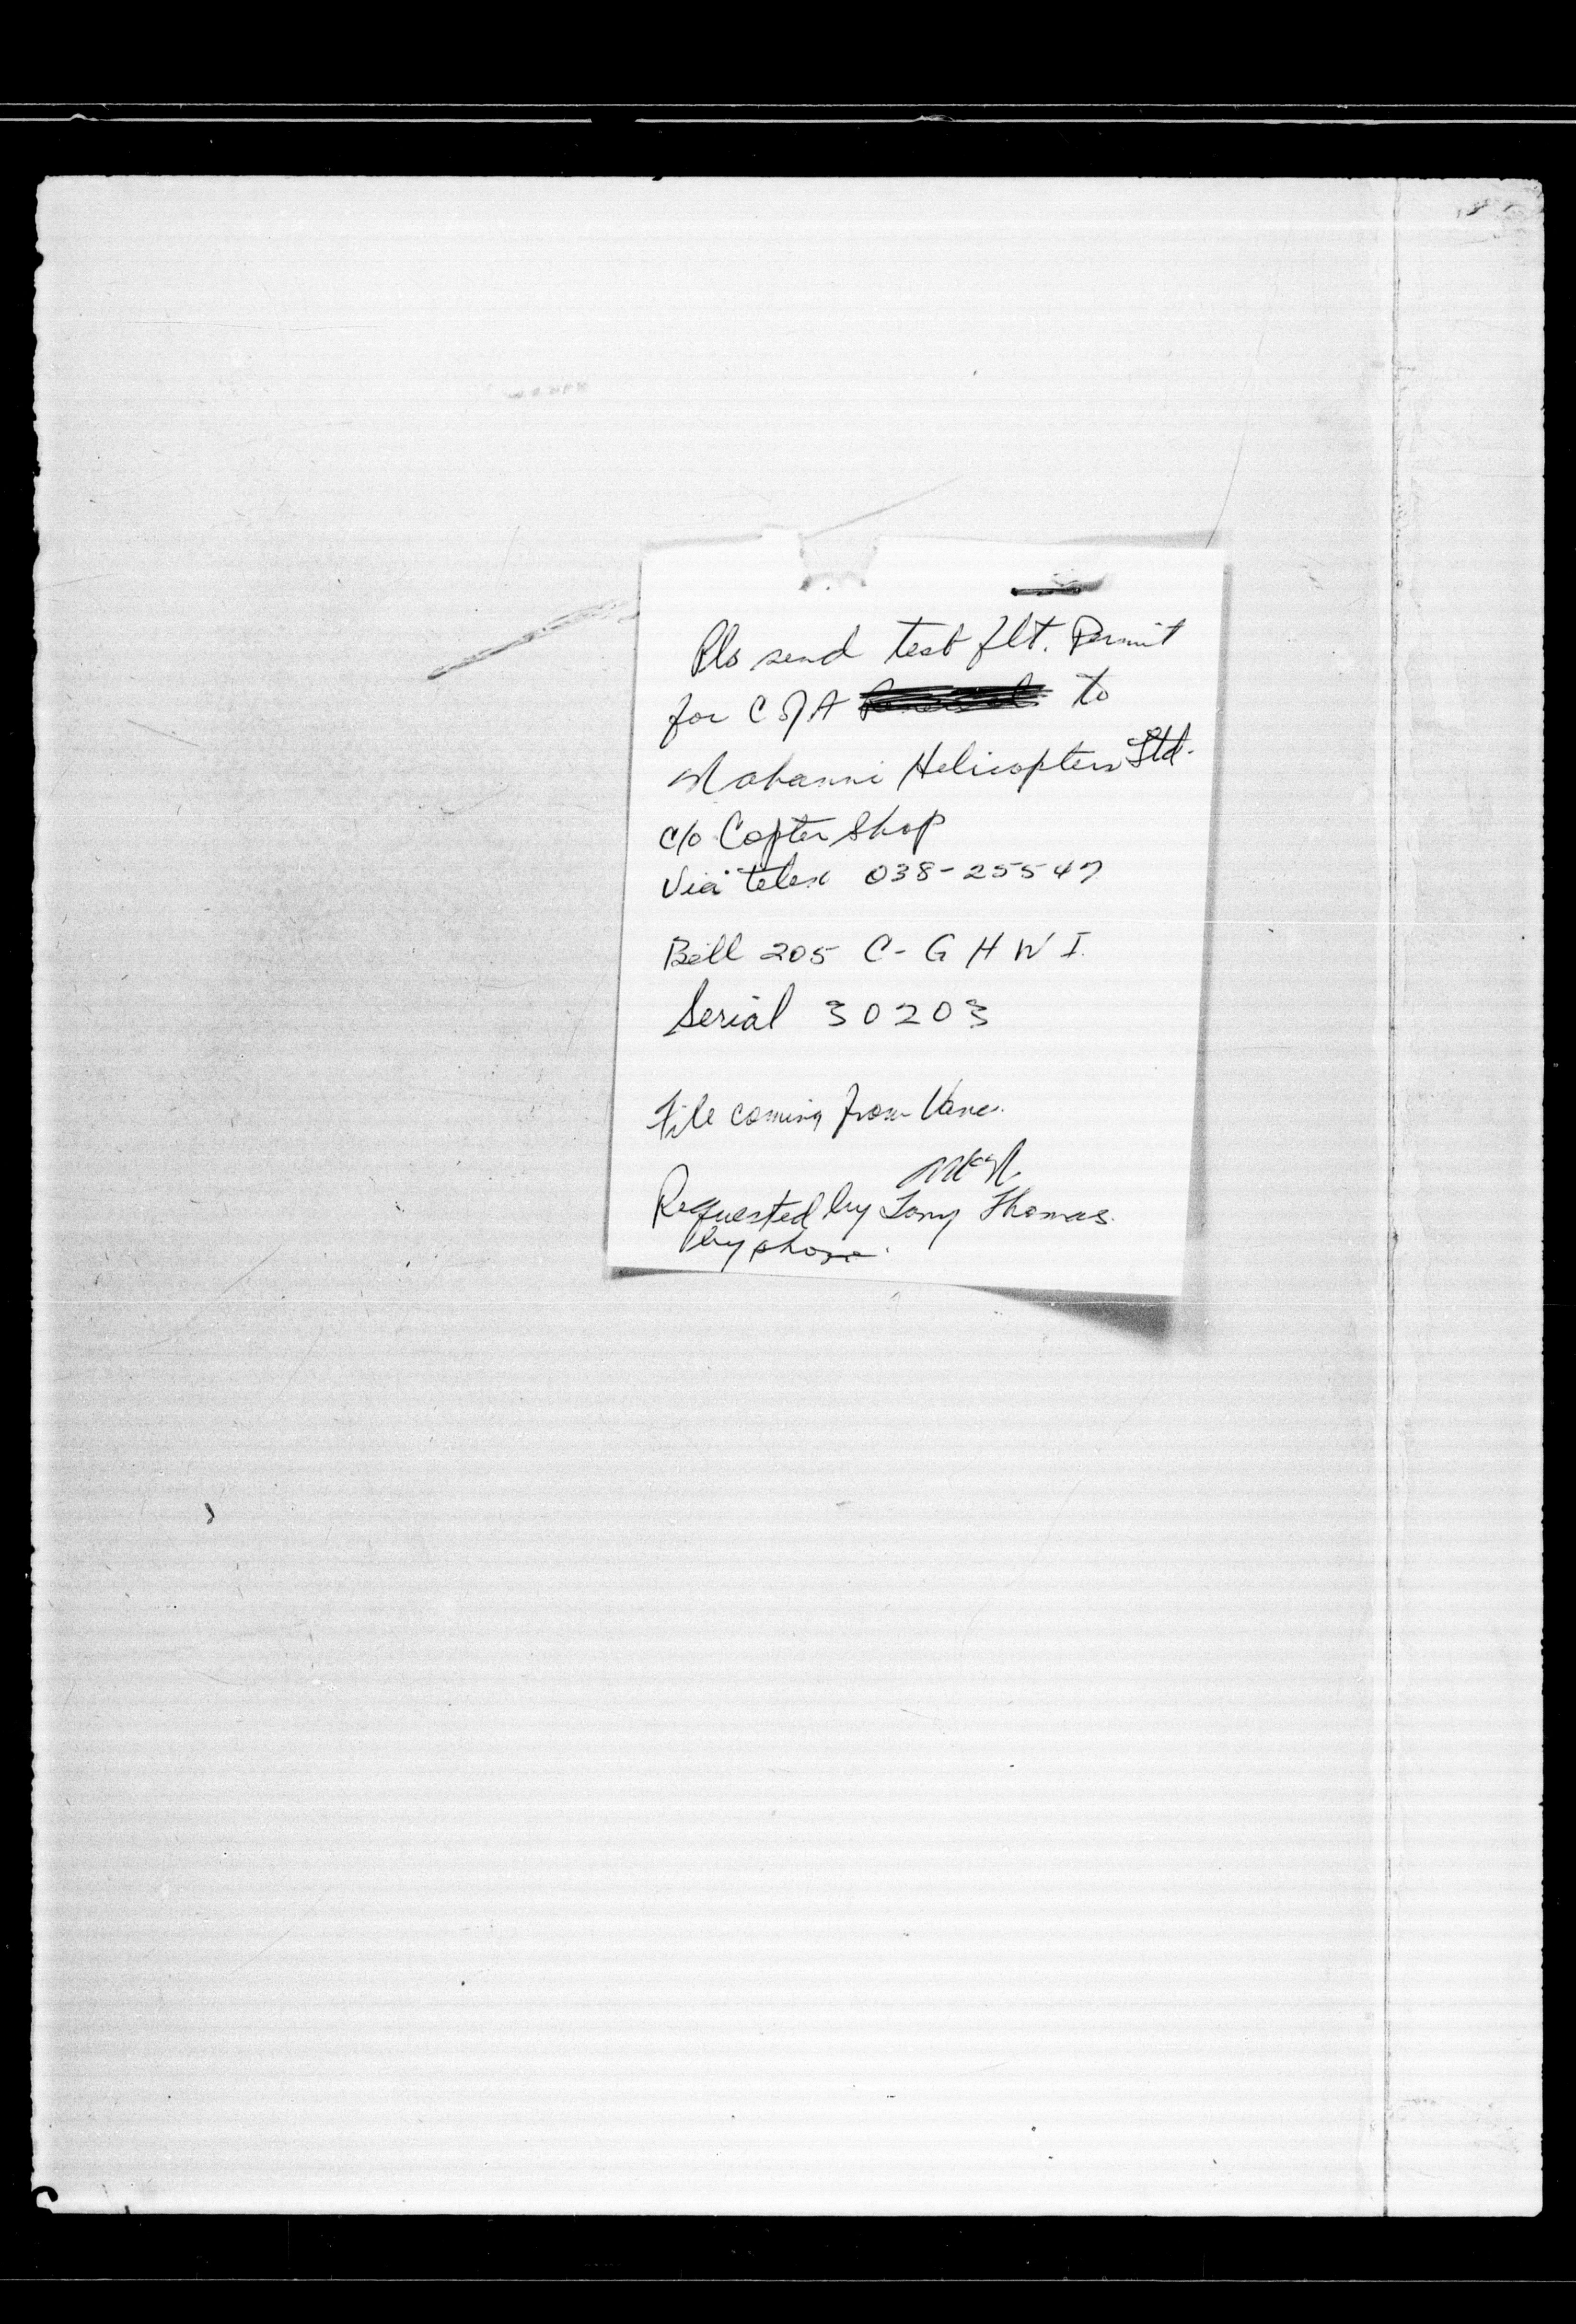 Pls send test flt. Permit
for C of A to
Nahanni Helicopters Ltd.
c/o Copter Shop
Via telex 038-25547
Bell 205 C-GHWI.
Serial 30203
File coming from Vanc.
McN
Requested by Tony Thomas.
by phone.